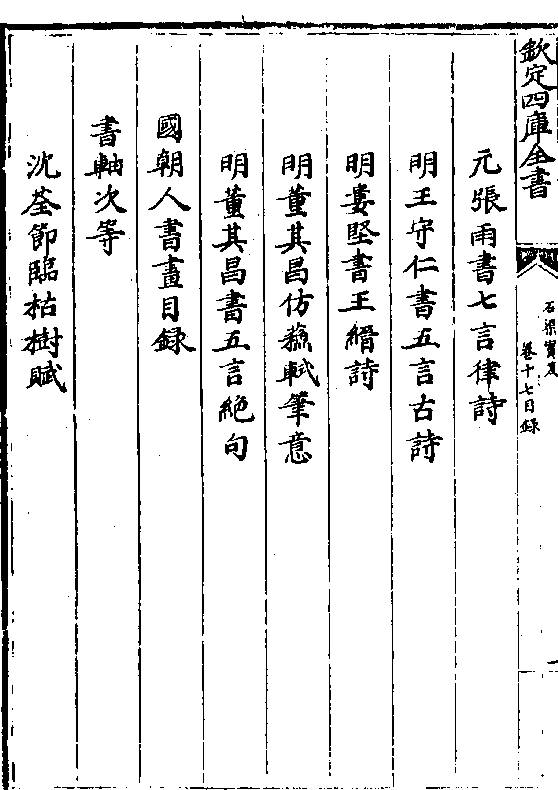 欽定四庫全書
石渠寶笈
卷十七目録
元張雨書七言律詩
明王守仁書五言古詩
明婁堅書王縉詩
明董其昌仿蘇軾筆意
明董其昌書五言絶句
國朝人書畫目録
書軸次等
沈荃節臨枯樹賦